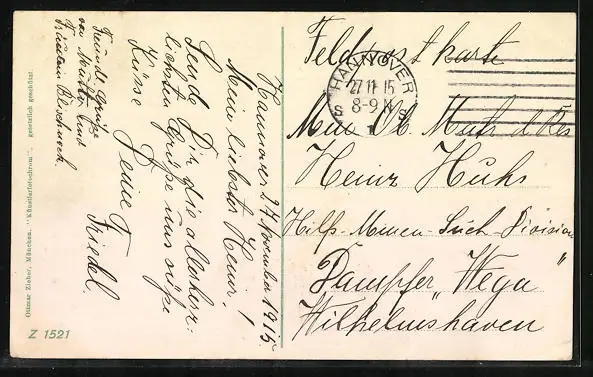 Feldpostkarte
HANNOVER
27.11.15
8-9 N
S S
Heinz Huhs
Hilfs-Minen-Such-Division
Dampfer „Wega"
Wilhelmshaven
Hannover 27. November 1915.
Mein liebster Heinz!
Sende Dir die allerherz-
liebsten Grüße und süße
Küsse Deine
Friedel.
Freundl. Grüße
von Mutter und
Fräulein
Ottmar Zieher, München. "Künstlerfotochrom". gesetzlich geschützt.
Z 1521